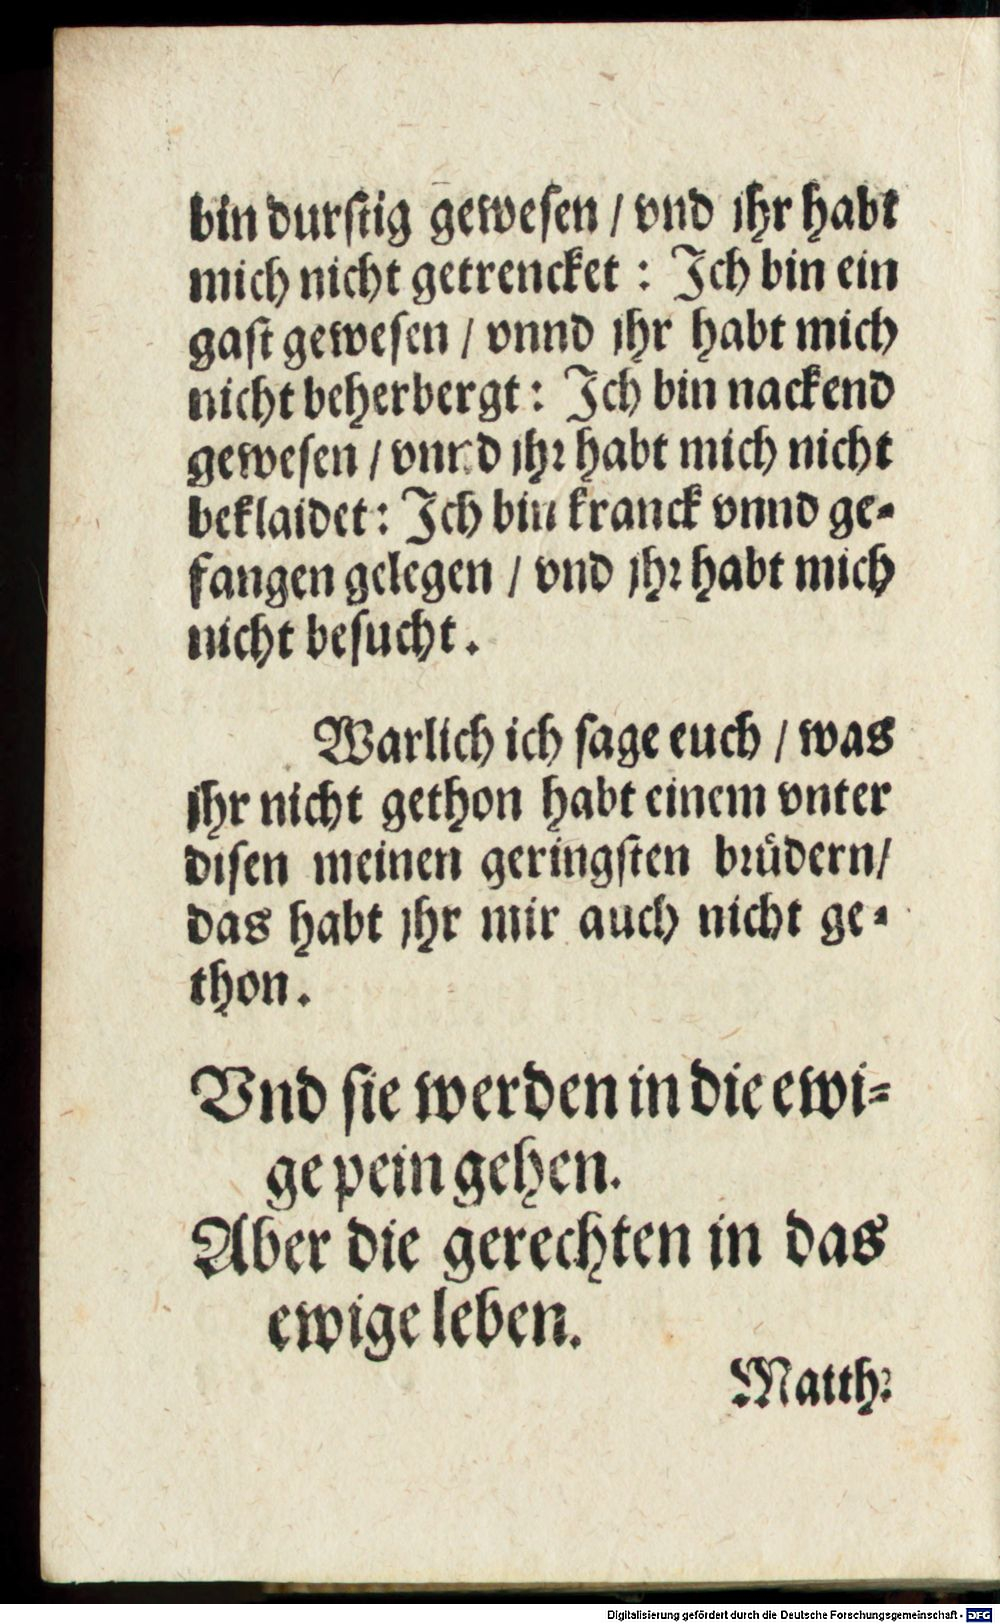 bin durſtig geweſen / vnd jhr habt
mich nicht getrencket : Ich bin ein
gaſt geweſen / vnnd jhr habt mich
nicht beherbergt : Ich bin nackend
geweſen / vnnd jhꝛ habt mich nicht
beklaidet : Ich bin kranck vnnd ge⸗
fangen gelegen / vnd jhꝛ habt mich
nicht beſucht .
Warlich ich ſage euch / was
jhr nicht gethon habt einem vnter
diſen meinen geringſten bꝛuͤdern/
das habt jhr mir auch nicht ge⸗
thon .
Vnd ſie werden in die ewi⸗
ge pein gehen.
Aber die gerechten in das
ewige leben.
Matth:
Digitalisierung gefördert durch die Deutsche Forschungsgemeinschaft - DFG